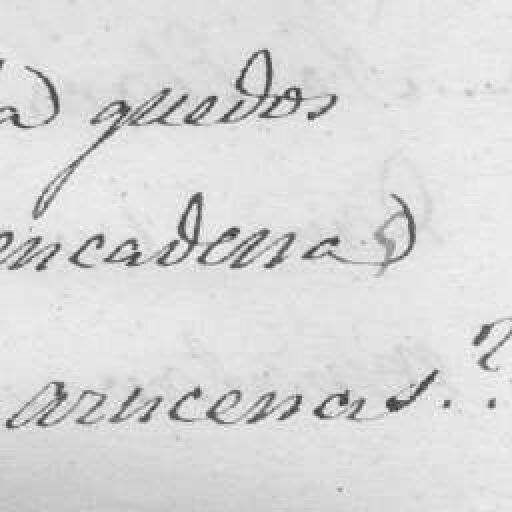 a quedos
encadena
azucenas..?